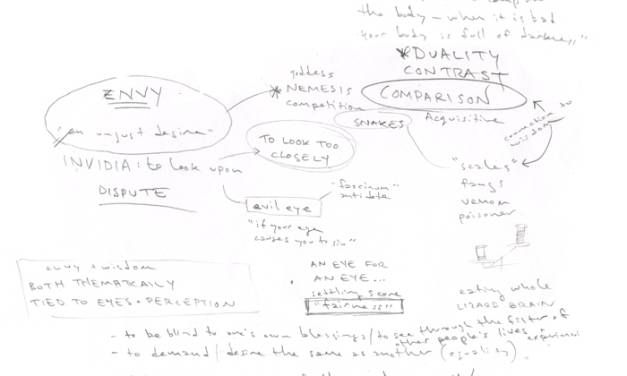 the body - when it is bad
your body is full of darkness"
*DUALITY
CONTRAST
COMPARISON
Acquisitive
goddess
*NEMESIS
competition
ENVY
"an unjust desire"
SNAKES
TO LOOK TOO
CLOSELY
connection to
wisdom
INVIDIA: to look upon
DISPUTE
"scales"
fangs
venom
poisoner
"fascinum"
antidote
evil eye
"if your eye
causes you to sin"
envy + wisdom
BOTH THEMATICALLY
TIED TO EYES + PERCEPTION
AN EYE FOR
AN EYE...
settling score
"fairness"
eating whole
LIZARD BRAIN
- to be blind to one's own blessings / to see through the filter of
other people's lives
- to demand / desire the same as another (equality)